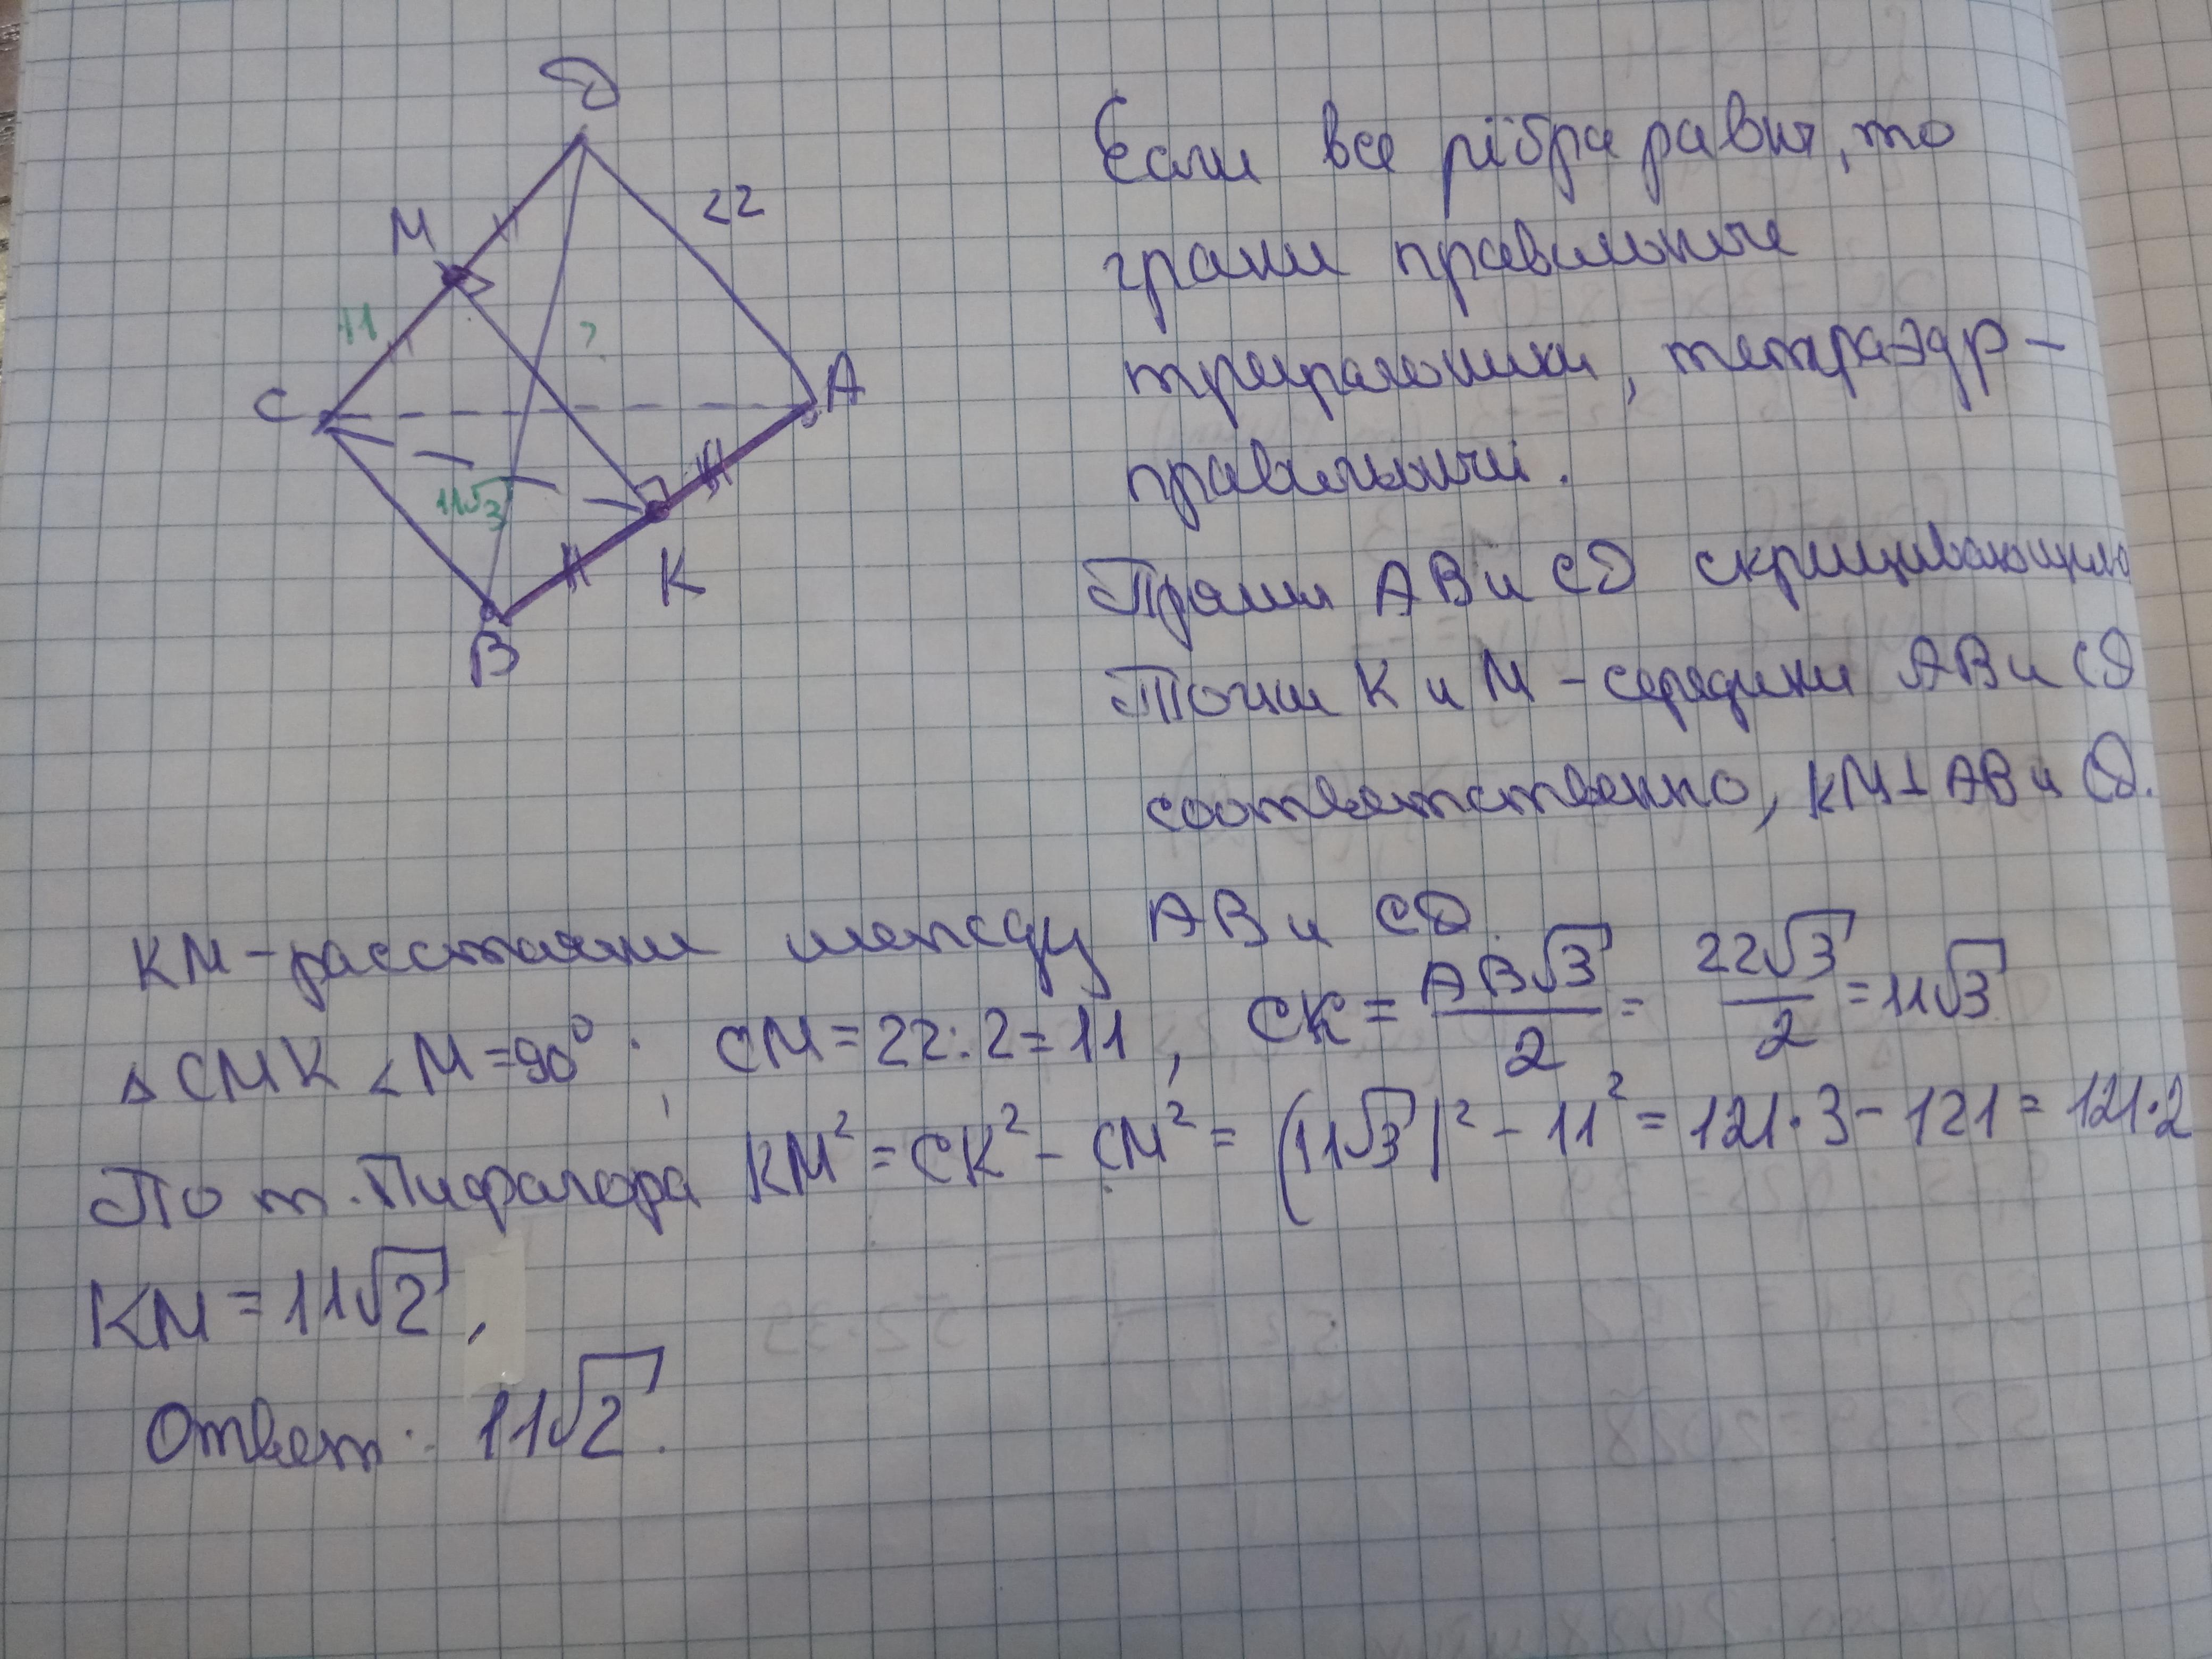 D
22
M
11
?
C
A
11√3
K
B
Если все рёбра равны, то
грани правильные
треугольники, тетраэдр –
правильный.
Прямые AB и CD скрещивающиеся
Точки K и M – середины AB и CD
соответственно, KM⊥AB и CD.
KM – расстояние между AB и CD.
△CMK ∠M = 90°. CM = 22:2 = 11, CK = AB√3/2 = 22√3/2 = 11√3
По т. Пифагора KM² = CK² - CM² = (11√3)² - 11² = 121·3 - 121 = 121·2
KM = 11√2,
Ответ: 11√2.